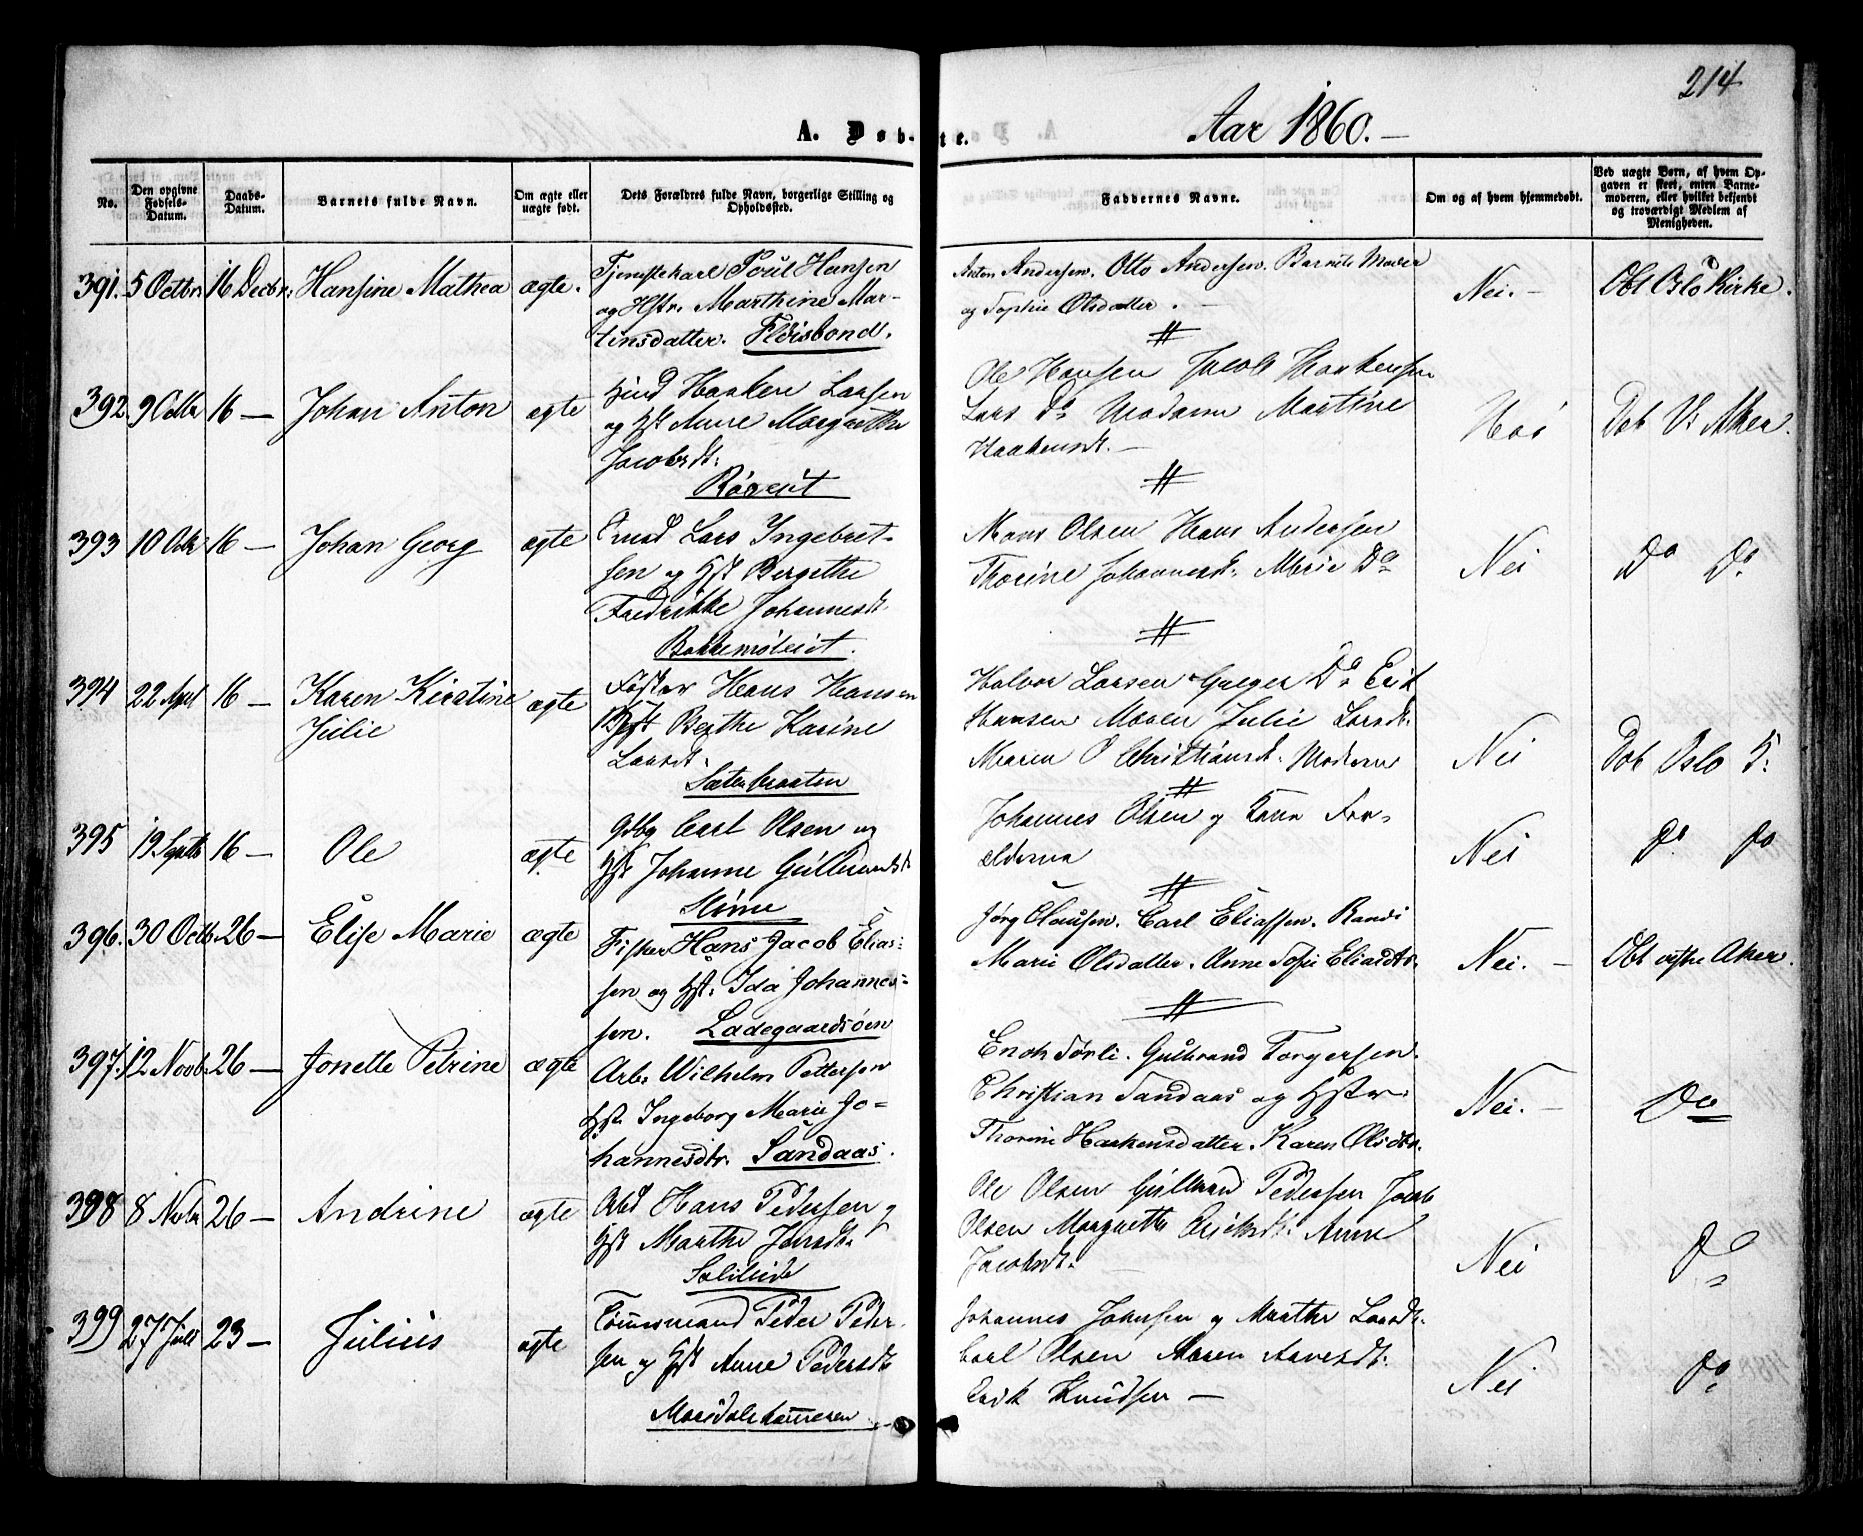 214
A. Døbte.
Aar 1860.
No.
Den opgivne Fødsels-Datum.
Daabs-Datum.
Barnets fulde Navn.
Om ægte eller uægte født.
Dets Forældres fulde Navn, borgerlige Stilling og Opholdssted.
Faddernes Navne.
Om og af hvem hjemmedøbt.
Ved uægte Børn, af hvem Opgaven er skeet, enten Barnemoderen, eller hvilket bekjendt og troværdigt Medlem af Menigheden.
391. 5 Octbr 16 Decbr. Hansine Mathea ægte.
Tjenestekarl Poul Hansen
og Hstr. Marthine Mar-
tinsdatter. Fldisbond.
Anton Andersen. Otto Andersen. Barnets Moder
og Sophie Olsdatter.
Nei. — Dbt Oslo Kirke.
392 9 Octbr 16 — Johan Anton ægte
Hmd Haaken Larsen
og Hst Anne Margrethe
Jacobsdt:
Ole Hansen Jacob Haakensen
Lars Do Madam Martine
Haakensdt. —
Nei Døb V: Aker.
393 10 Octr 16 — Johan Georg ægte
Lars Ingebret-
sen og Hst Bergithe
Fredrikke Johannesdt.
Bakkemøleiet.
Mons Olsen Hans Andersen
Thorine Johannesdt. Marie Do
Nei Do Do
394 22 April 16 — Karen Kirstine ægte
Julie
Hans Hansen
Hst Berthe Karine
Larsdt.
Sæterbraaten
Halvor Larsen Gulger Do Erik
Hansen Maren Julie Larsdt.
Maren O Christiansdt. Moderen
Nei Døb Oslo K:
395 19 Septb 16 — Ole ægte
Carl Olsen og
Hst Johanne Gulbrandsdt
Johannes Olsen og Kone For-
ældrene
Nei Do Do
396. 30 Octb. 26 — Elise Marie ægte
Fisker Hans Jacob Elias-
sen og Hst: Ida Johannes-
sen. Ladegaardsøen
Jørg Olausen. Carl Eliassen. Randi
Marie Olsdatter. Anne Sofie Eliasdtr.
Nei. — Dbt vestre Aker.
397. 12 Novb. 26 — Jonette Petrine ægte
Arb. Wilhelm Pettersen
Hst. Ingeborg Marie Jo-
hannesdtr. Sandaas.
Enoch Sørli. Gulbrand Torgersen.
Christian Sandaas og Hstr.
Thorine Haakensdatter. Karen Olsdtr.
Nei. — Do
398 8 Novbr 26 — Andrine ægte
Arbd Hans Pedersen og
Hst Marthe Jensdt.
Solitude
Ole Olsen Gulbrand Pedersen Jacob
Olsen Margrethe Eriksdt: Anne
Jacobsdt.
Nei Do
399 27 Juli 23 — Julius ægte
Tømmermand Peder Peder-
sen og Hst Anne Pedersdt
Johannes Johnsen og Marthe Larsdt.
Carl Olsen Maren Aavesdt:
Erik Knudsen —
Nei Do